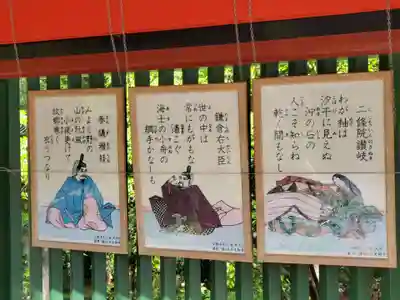 二條院讃岐
わが袖は
汐干に見えぬ
沖の石の
人こそ知らね
乾く間もなし
鎌倉右大臣
世の中は
常にもがもな
渚こぐ
海士の小舟の
綱手かなしも
参議雅経
みよし野の
山の秋風
小夜更けて
故郷寒く
衣うつなり